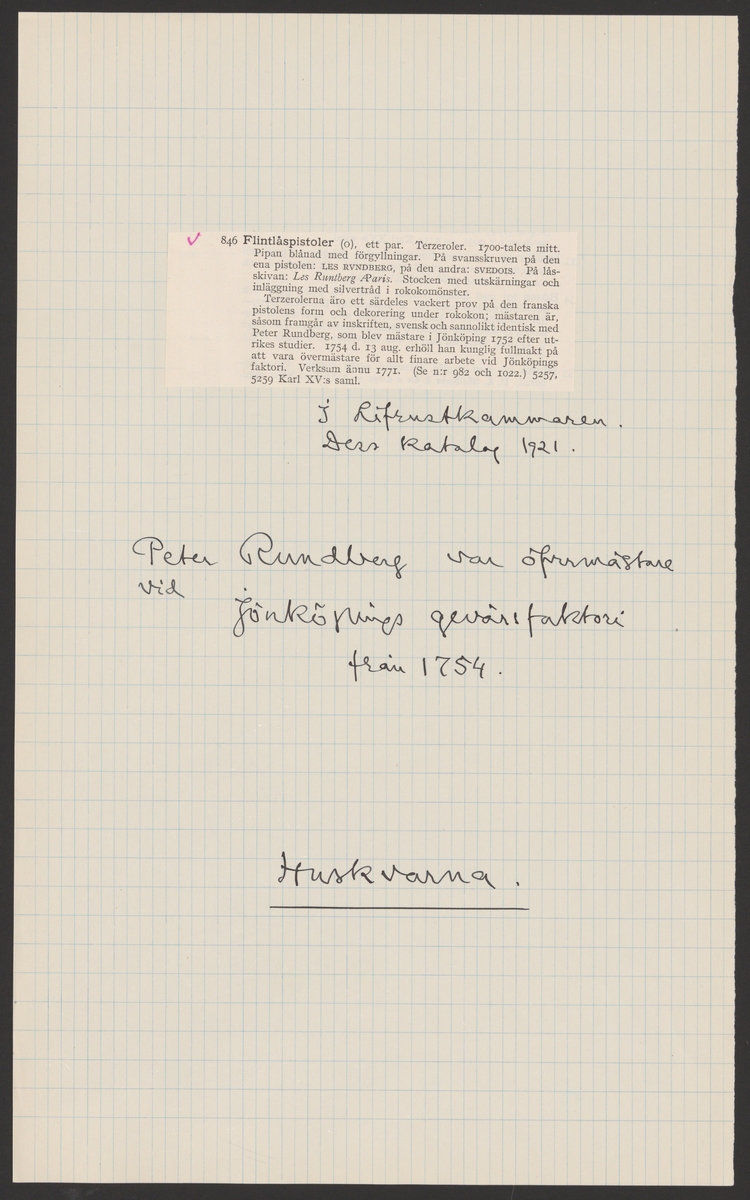 846 Flintlåspistoler (o), ett par. Terzeroler. 1700-talets mitt.
Pipan blånad med förgyllningar. På svansskruven på den
ena pistolen: LES RVNDBERG, på den andra: SVEDOIS. På lås-
skivan: Les Runtberg Æaris. Stocken med utskärningar och
inläggning med silvertråd i rokokomönster.
Terzerolerna äro ett särdeles vackert prov på den franska
pistolens form och dekorering under rokokon; mästaren är,
såsom framgår av inskriften, svensk och sannolikt identisk med
Peter Rundberg, som blev mästare i Jönköping 1752 efter ut-
rikes studier. 1754 d. 13 aug. erhöll han kunglig fullmakt på
att vara övermästare för allt finare arbete vid Jönköpings
faktori. Verksam ännu 1771. (Se n:r 982 och 1022.) 5257,
5259 Karl XV:s saml.
i Lifrustkammaren.
Dess katalog 1921.
Peter Rundberg var öfvermästare
vid
Jönköpings gevärsfaktori
från 1754.
Huskvarna.